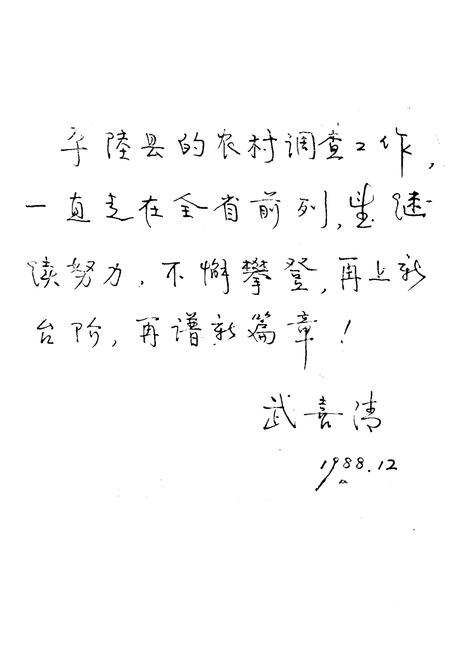 平陸县的农村调查工作,
一直走在全省前列,望继
续努力,不懈攀登,再上新
台阶,再谱新篇章!
武喜清
1988.12